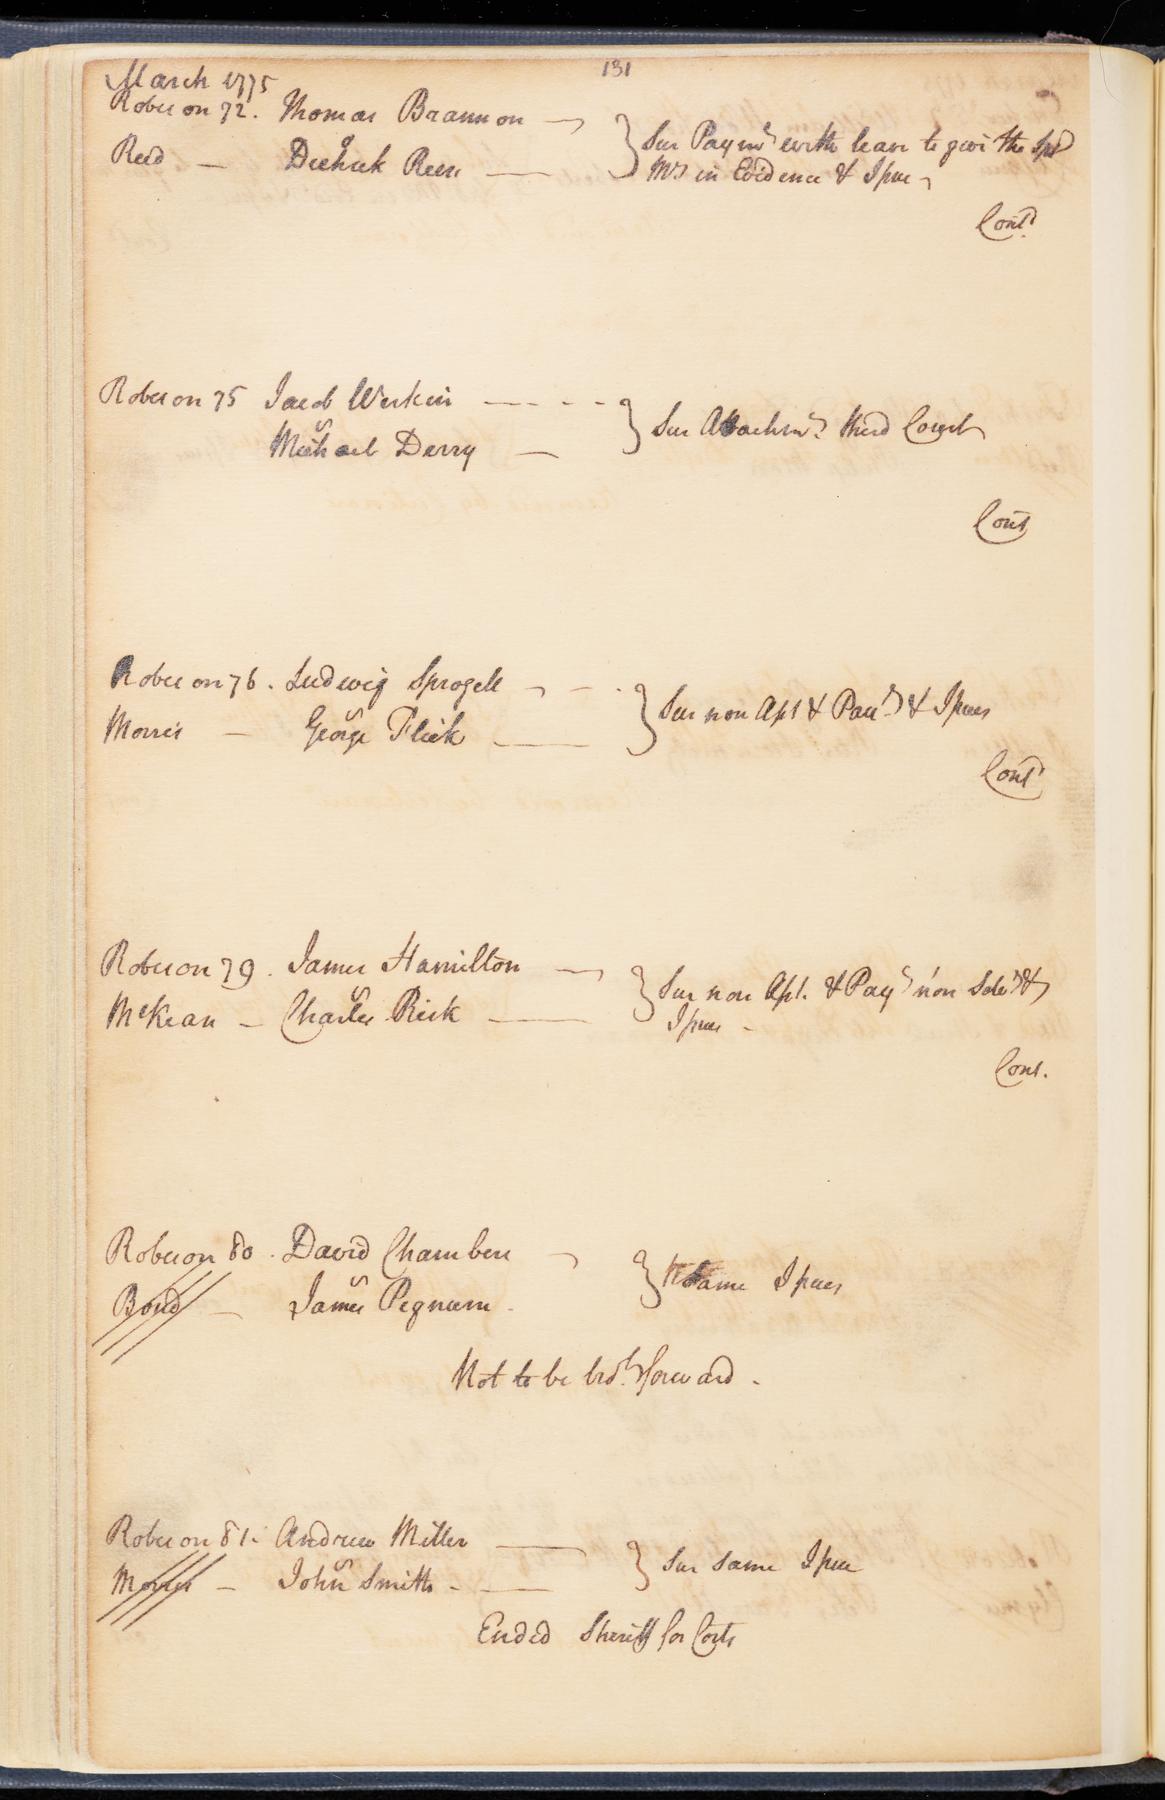 131
March 1775
Roberson 72. Thomas Brannon
Reed — Diehrick Rees —
} Sur Paymt. with leave to give the Spl
Mr in Evidence & Issue
Contd
Roberson 75 Jacob Werkin - - - -
vs
Michael Derry —
} Sur Attachmt. third Court
Cont
Roberson 76. Ludwig Sprogell - - .
vs
Morris — George Flick —
} Sur non Ast & Paymt & Issues
Contd
Roberson 79. James Hamilton —
vs
McKean — Charles Risk —
} Sur non Ast. & Payt non Solvt &
Issues -
Cont.
Roberson 80. David Chambers
vs
Bond — James Pegnum.
} Same Issues
Not to be brot. forward.
Roberson 81. Andrew Miller —
vs
Morris — John Smith. —
} Sur same Issue
Ended Sheriff for Costs